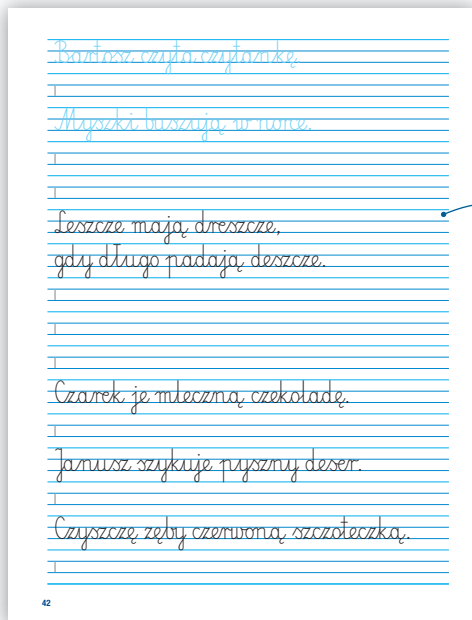 Bartosz czyta czytankę.
Myszki buszują w norce.
Leszcze mają dreszcze,
gdy długo padają deszcze.
Czarek je mleczną czekoladę.
Janusz szykuje pyszny deser.
Czyszczę zęby czerwoną szczoteczką.
42